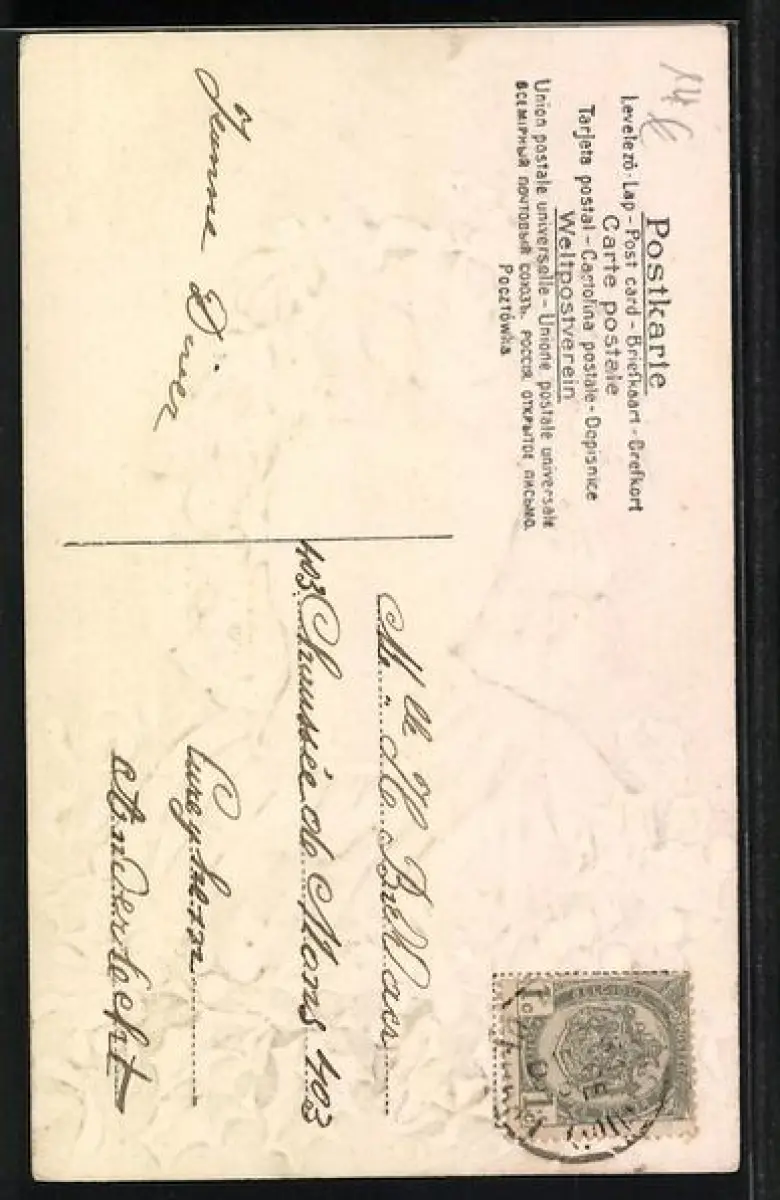 14 €
Postkarte
Levelező-Lap - Post card - Briefkaart - Brefkort
Carte postale
Tarjeta postal - Cartolina postale - Dopisnice
Weltpostverein
Union postale universelle - Unione postale universale
ВСЕМІРНЫЙ ПОЧТОВЫЙ СОЮЗЪ. РОССІЯ. ОТКРЫТОЕ ПИСЬМО.
Pocztówka
Jeanne
Mlle H
403 Chaussée de Mons 403
Anderlecht
BELGIQUE